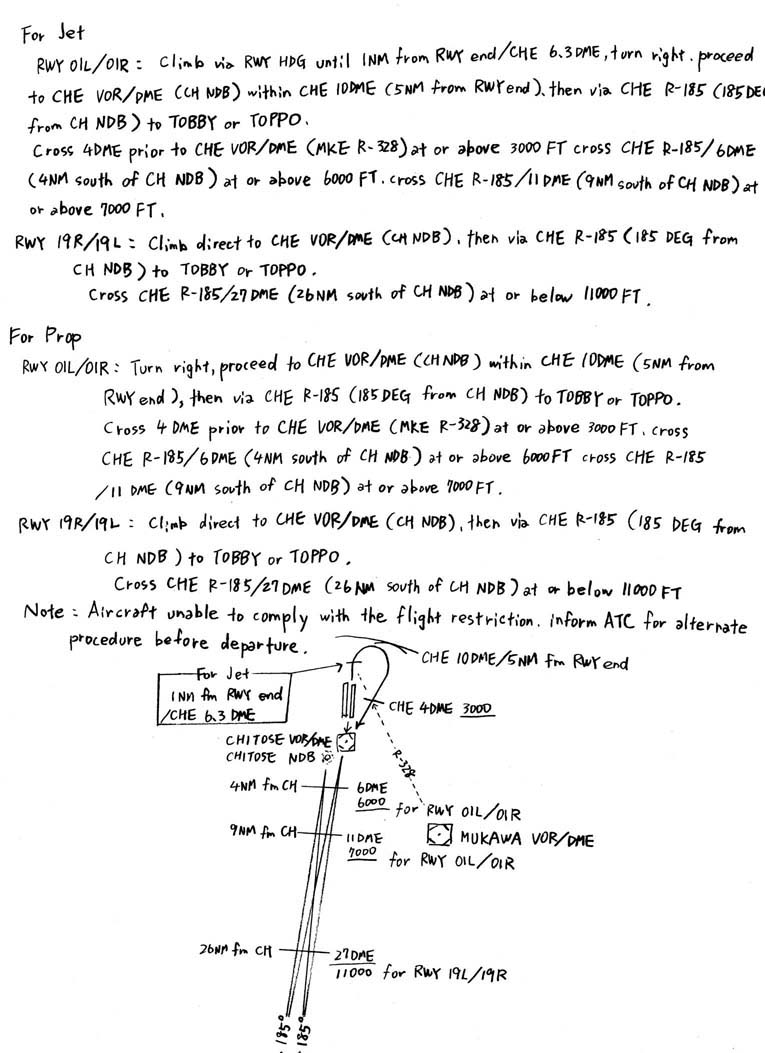 For Jet
RWY 01L/01R : Climb via RWY HDG until 1NM from RWY end/CHE 6.3 DME, turn right. proceed
to CHE VOR/DME (CH NDB) within CHE 10DME (5NM from RWY end), then via CHE R-185 (185DE
from CH NDB) to TOBBY or TOPPO.
Cross 4DME prior to CHE VOR/DME (MKE R-328) at or above 3000 FT cross CHE R-185/6DME
(4NM south of CH NDB) at or above 6000 FT. cross CHE R-185/11 DME (9NM south of CH NDB) at
or above 7000 FT.
RWY 19R/19L : Climb direct to CHE VOR/DME (CH NDB), then via CHE R-185 (185 DEG from
CH NDB) to TOBBY or TOPPO.
Cross CHE R-185/27DME (26NM south of CH NDB) at or below 11000 FT.
For Prop
RWY 01L/01R : Turn right, proceed to CHE VOR/DME (CH NDB) within CHE 10DME (5NM from
RWY end), then via CHE R-185 (185DEG from CH NDB) to TOBBY or TOPPO.
Cross 4 DME prior to CHE VOR/DME (MKE R-328) at or above 3000 FT. cross
CHE R-185/6DME (4NM south of CH NDB) at or above 6000FT cross CHE R-185
/11 DME (9NM south of CH NDB) at or above 7000 FT.
RWY 19R/19L : Climb direct to CHE VOR/DME (CH NDB), then via CHE R-185 (185 DEG from
CH NDB) to TOBBY or TOPPO.
Cross CHE R-185/27DME (26NM south of CH NDB) at or below 11000 FT
Note : Aircraft unable to comply with the flight restriction. inform ATC for alternate
procedure before departure.
CHE 10DME/5NM fm RWY end
For Jet
1NM fm RWY end
/CHE 6.3 DME
CHE 4DME 3000
CHITOSE VOR/DME
CHITOSE NDB
R-328
4NM fm CH
6DME
6000 for RWY 01L/01R
MUKAWA VOR/DME
9NM fm CH
11DME
7000 for RWY 01L/01R
26NM fm CH
27DME
11000 for RWY 19L/19R
185°
185°